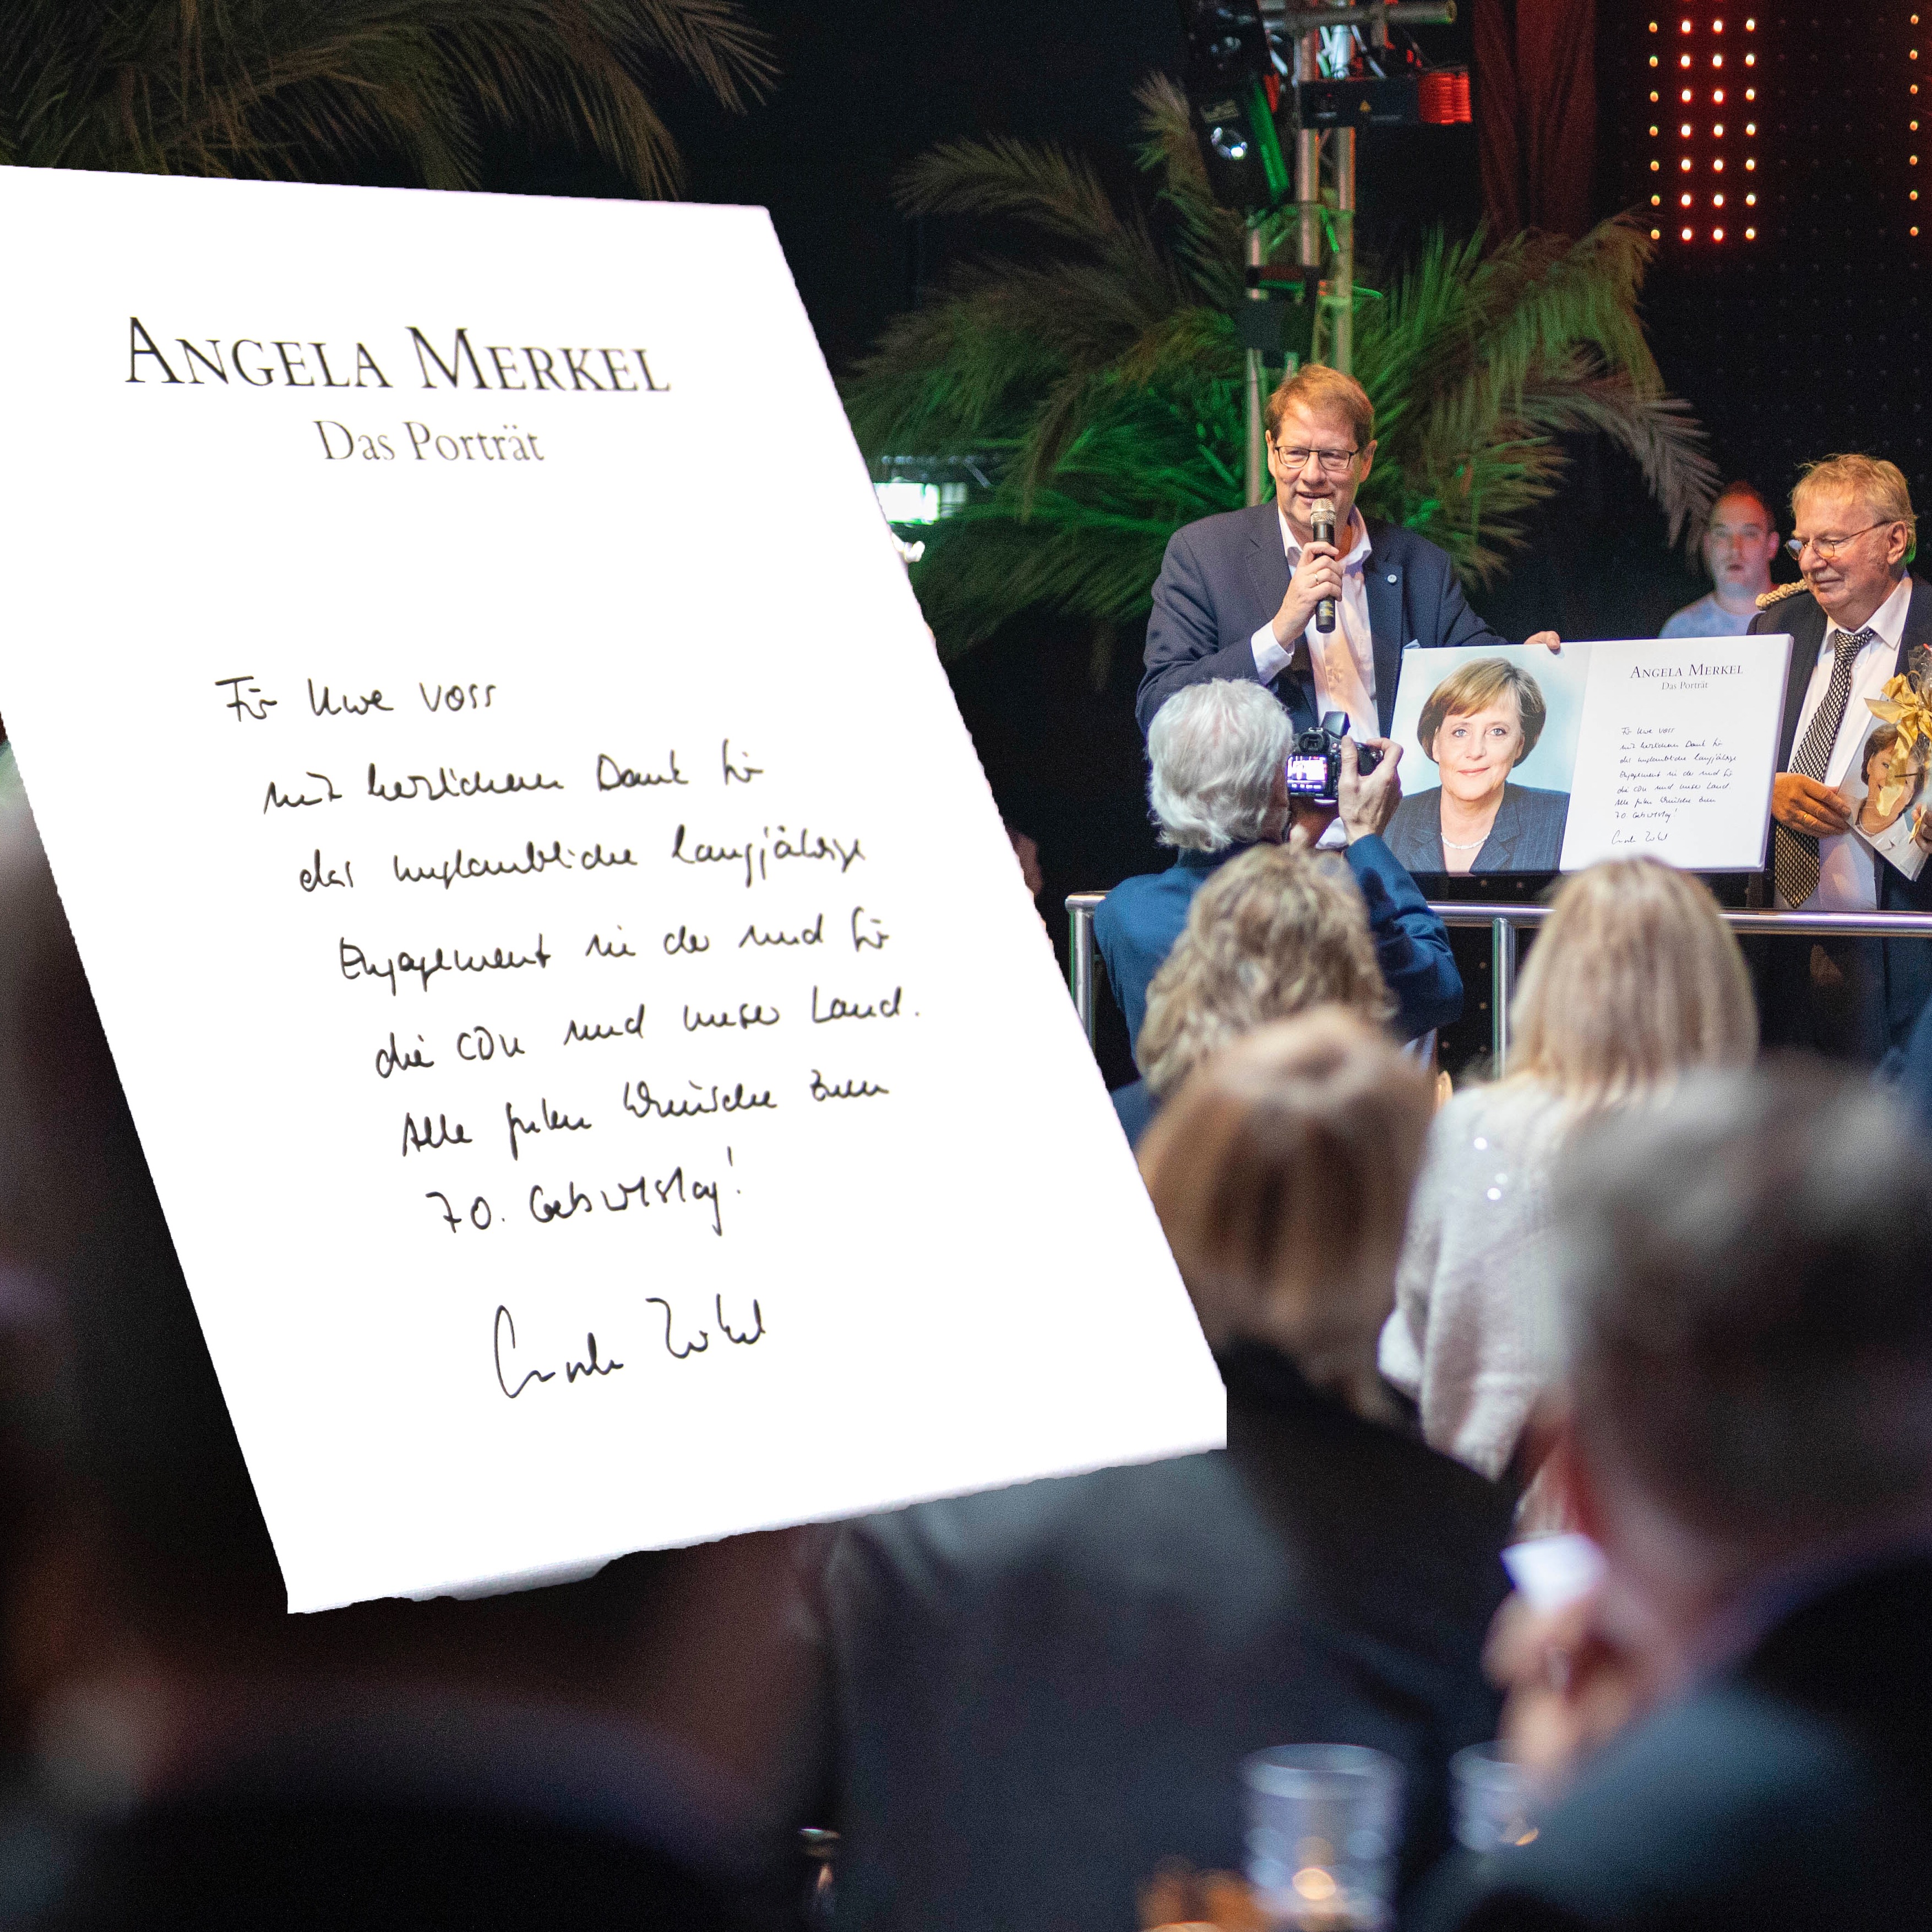 ANGELA MERKEL
Das Porträt
Für Uwe Voss
mit herzlichem Dank für
das unglaubliche langjährige
Engagement in der und für
die CDU und unser Land.
Alle guten Wünsche zum
70. Geburtstag!
Angela Merkel
ANGELA MERKEL
Das Porträt
Für Uwe Voss
mit herzlichem Dank für
das unglaubliche langjährige
Engagement in der und für
die CDU und unser Land.
Alle guten Wünsche zum
70. Geburtstag!
Angela Merkel